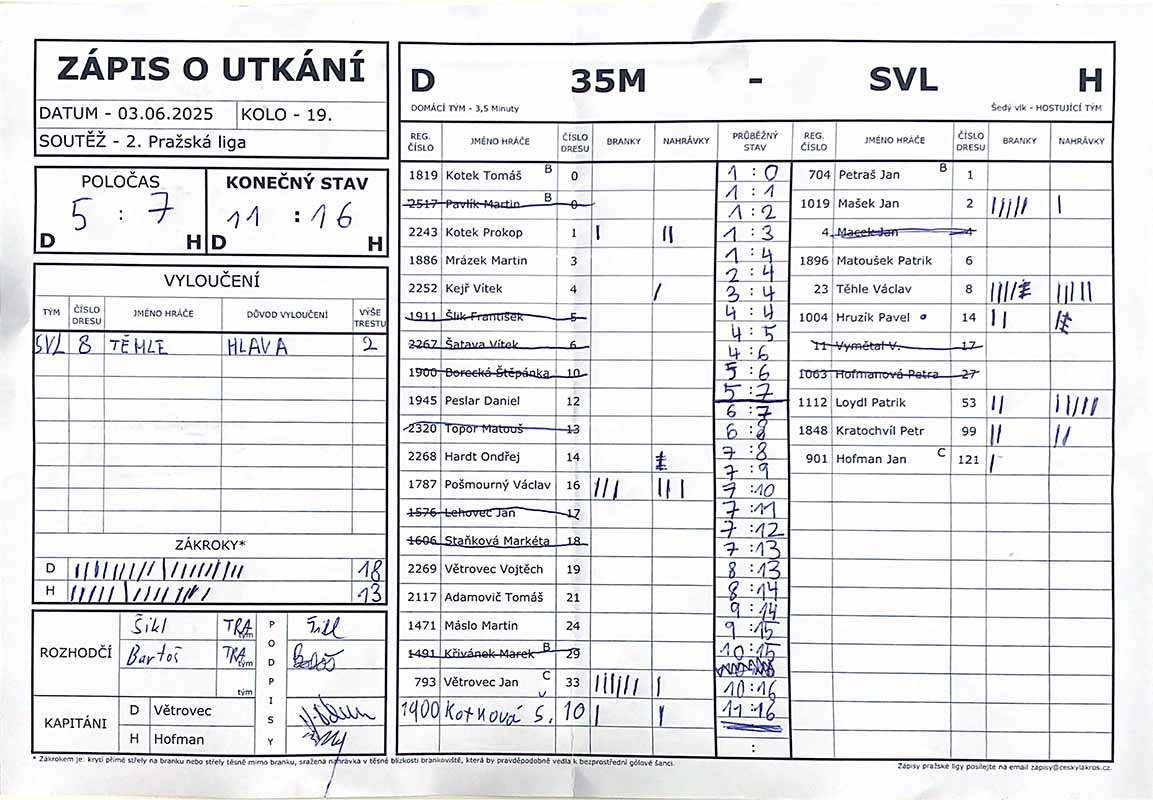 ZÁPIS O UTKÁNÍ
DATUM - 03.06.2025 KOLO - 19.
SOUTĚŽ - 2. Pražská liga
POLOČAS KONEČNÝ STAV
5 : 7 11 : 16
D H D H
VYLOUČENÍ
TÝM ČÍSLO DRESU JMÉNO HRÁČE DŮVOD VYLOUČENÍ VÝŠE TRESTU
SVL 8 TĚMLE HLAVA 2
ZÁKROKY*
D 18
H 13
ROZHODČÍ
Šikl TRA tým
Bartoš TRA tým
tým
PODPISY
KAPITÁNI
D Větrovec
H Hofman
D 35M - SVL H
DOMÁCÍ TÝM - 3,5 Minuty Šedý vlk - HOSTUJÍCÍ TÝM
REG. ČÍSLO JMÉNO HRÁČE ČÍSLO DRESU BRANKY NAHRÁVKY
1819 Kotek Tomáš B 0
2517 Pavlík Martin B 0
2243 Kotek Prokop 1 | ||
1886 Mrázek Martin 3
2252 Kejř Vítek 4 |
1911 Šlik František 5
2267 Šatava Vítek 6
1900 Borecká Štěpánka 10
1945 Peslar Daniel 12
2320 Topor Matouš 13
2268 Hardt Ondřej 14
1787 Pošmourný Václav 16 ||| |||
1576 Lehovec Jan 17
1606 Staňková Markéta 18
2269 Větrovec Vojtěch 19
2117 Adamovič Tomáš 21
1471 Máslo Martin 24
1491 Křivánek Marek B 29
793 Větrovec Jan C 33 |||||| |
1900 Kotková S. 10 | |
PRŮBĚŽNÝ STAV
1 : 0
1 : 1
1 : 2
1 : 3
1 : 4
2 : 4
3 : 4
4 : 4
4 : 5
4 : 6
5 : 6
5 : 7
6 : 7
6 : 8
7 : 8
7 : 9
7 : 10
7 : 11
7 : 12
7 : 13
8 : 13
8 : 14
9 : 14
9 : 15
10 : 15
10 : 16
11 : 16
:
REG. ČÍSLO JMÉNO HRÁČE ČÍSLO DRESU BRANKY NAHRÁVKY
704 Petraš Jan B 1
1019 Mašek Jan 2 ||||| |
4 Macek Jan 4
1896 Matoušek Patrik 6
23 Těhle Václav 8 |||||
1004 Hruzík Pavel 14 ||
11 Vymětal V. 17
1063 Hofmanová Petra 27
1112 Loydl Patrik 53 || |||||
1848 Kratochvíl Petr 99 || ||
901 Hofman Jan C 121 |
* Zákrokem je: krytí přímé střely na branku nebo střely těsně mimo branku, sražená nahrávka v těsné blízkosti brankoviště, která by pravděpodobně vedla k bezprostřední gólové šanci.
Zápisy pražské ligy posílejte na email zapisy@ceskylakros.cz.